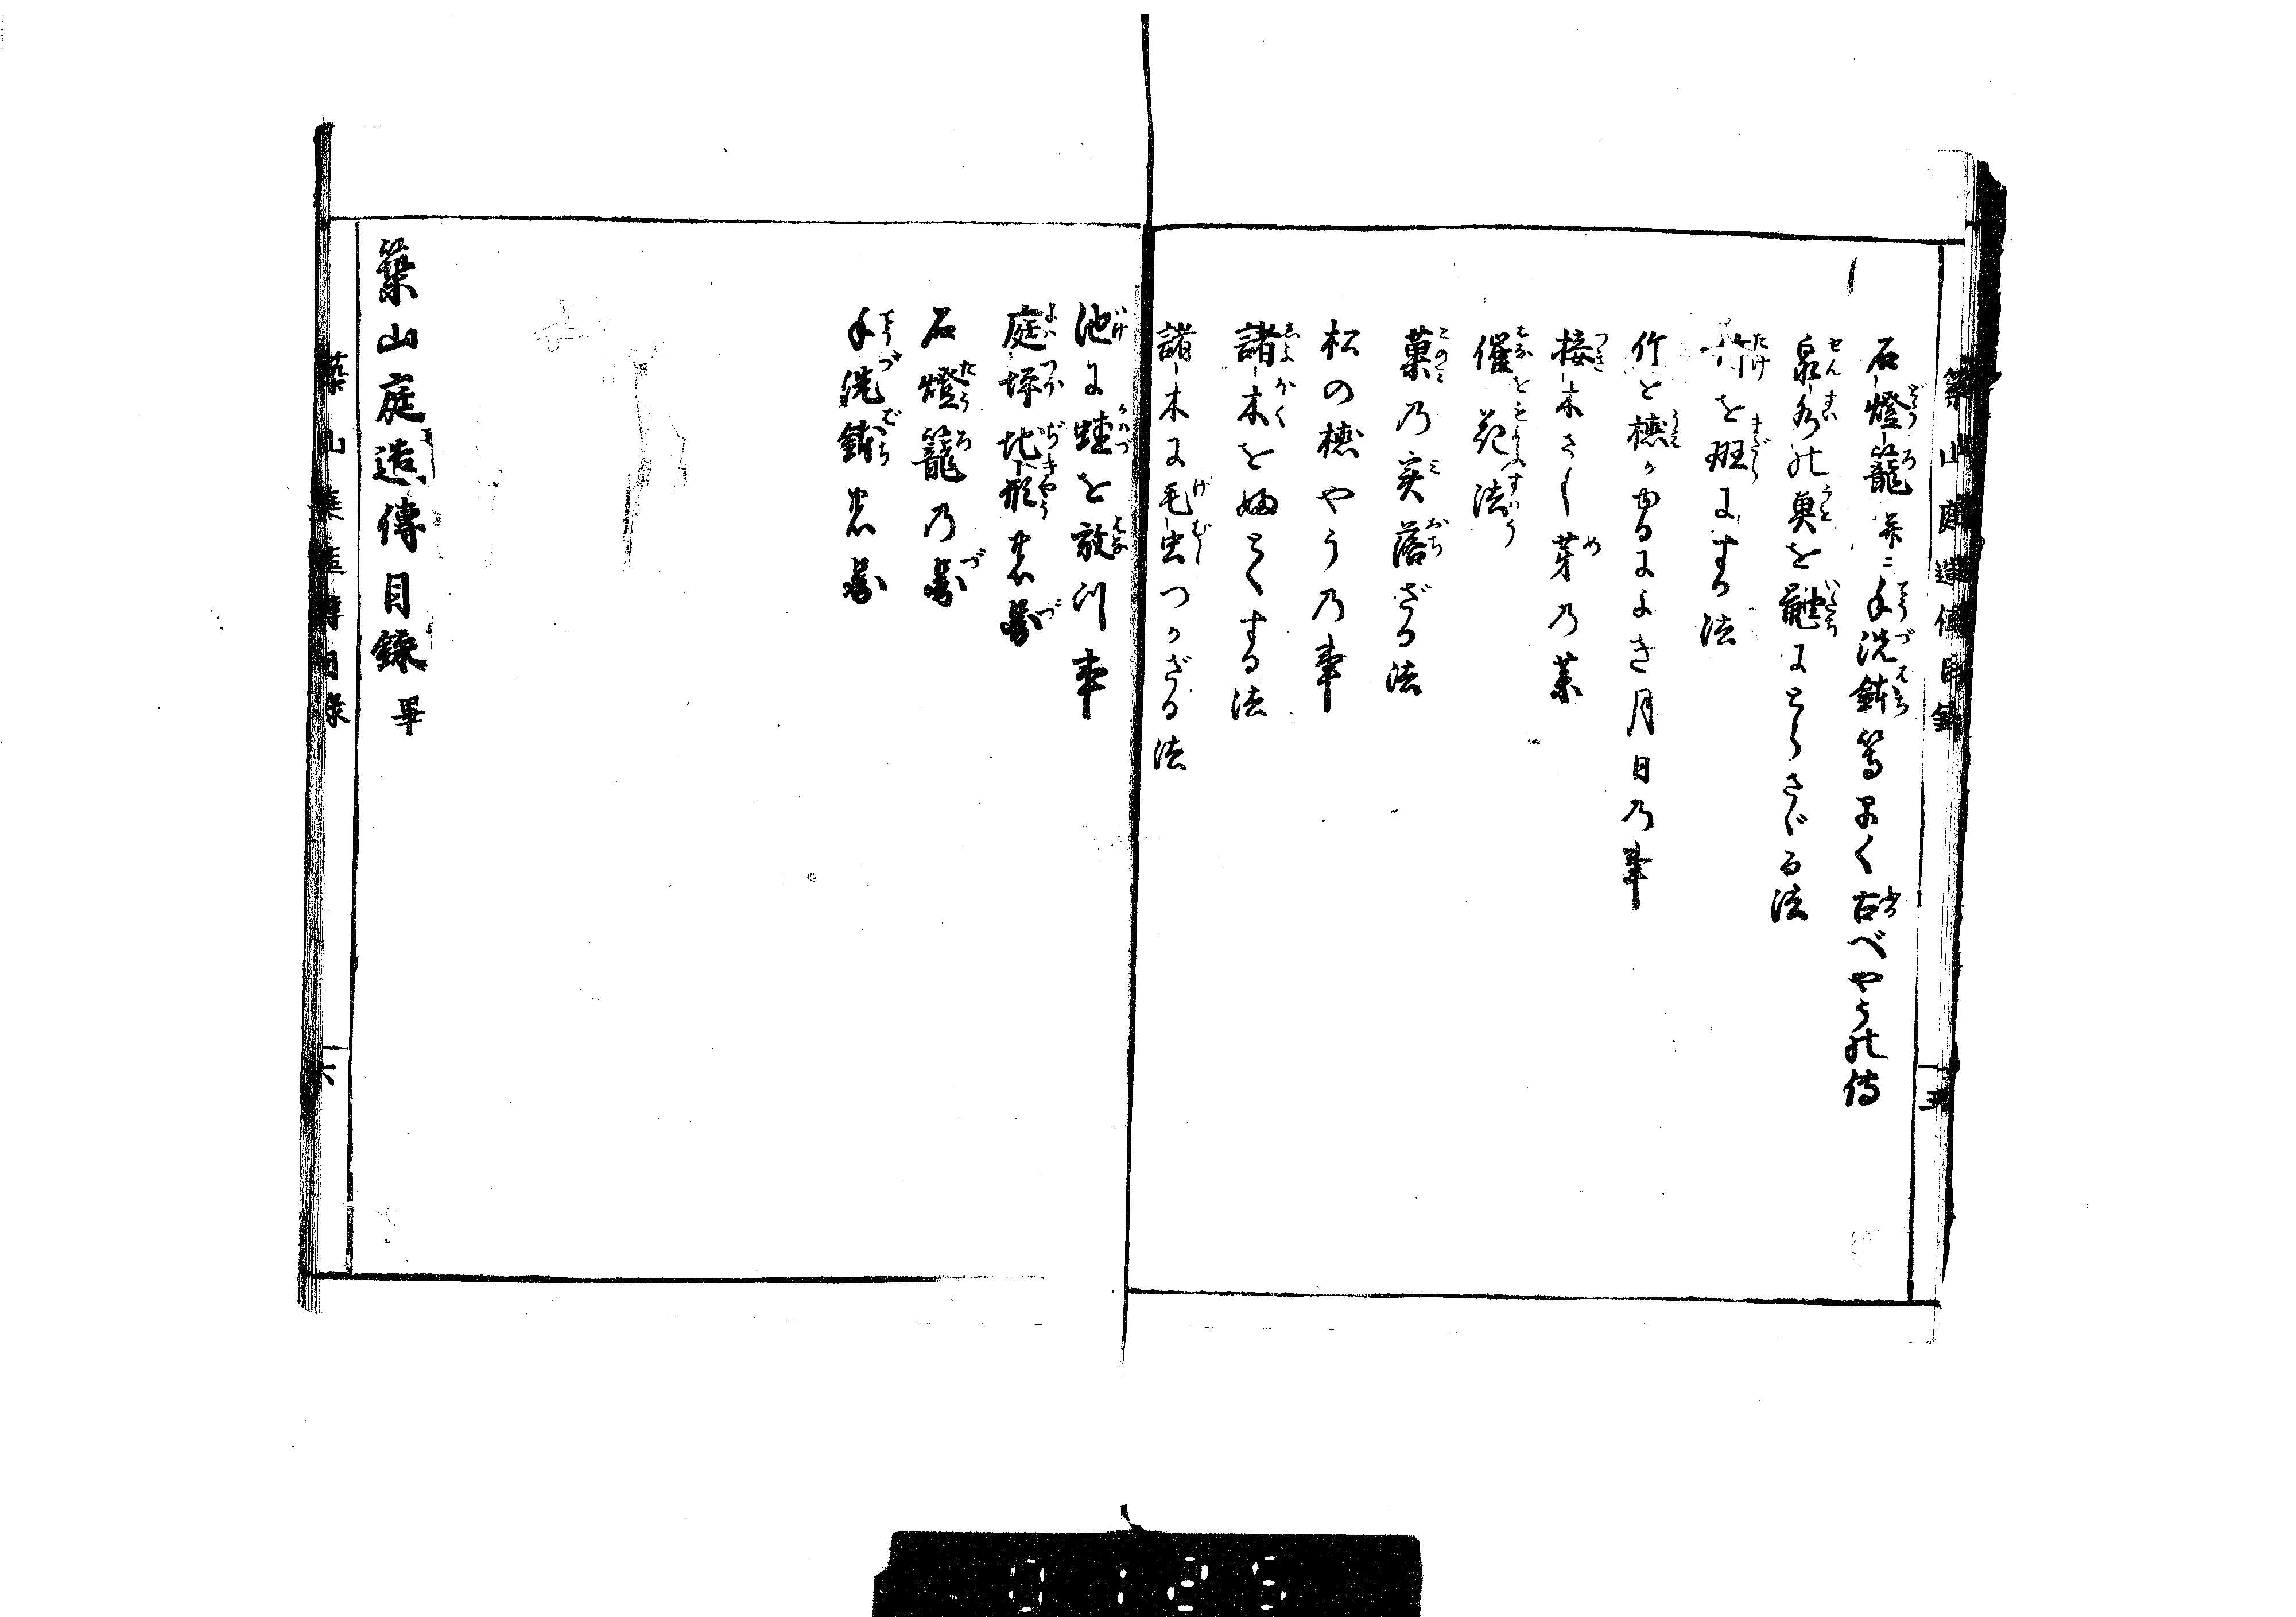 築山庭造傳目録
五
石燈籠并ニ手洗鉢等早く古べやうの傳
泉水の魚を鼬にとらさぶる法
竹を斑にする法
竹を植かゆるによき月日乃事
接木さし芽乃藥
催花法
菓乃実落ざる法
松の植やう乃事
諸木を
諸木に毛虫つかざる法
池に蛙を放つ事
庭坪地形
石燈籠乃圖
手洗鉢
築山庭造傳目録 畢
築山庭造傳目録
六
0125